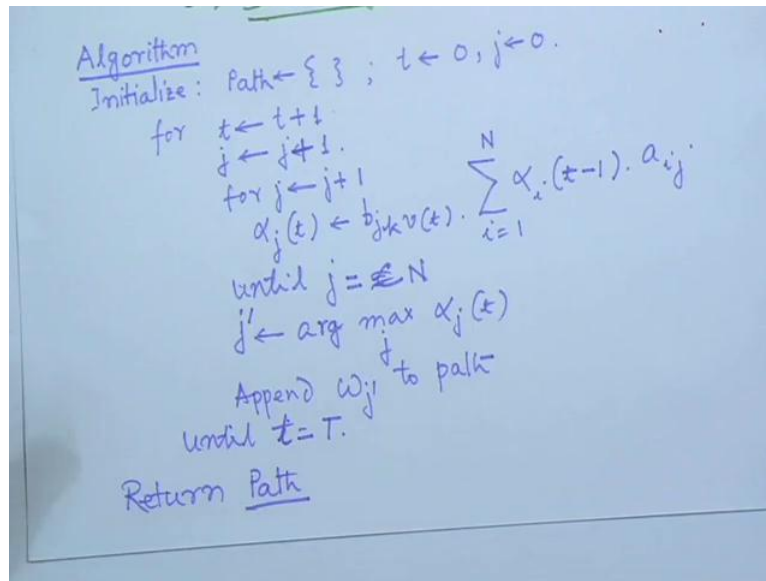 Algorithm
Initialize: Path ← { } ; t ← 0, j ← 0.
for t ← t+1
j ← j+1.
for j ← j+1
α_j(t) ← b_jk v(t) . ∑_{i=1}^{N} α_i(t-1) . a_ij
until j = N
j' ← arg max_j α_j(t)
Append ω_j' to path
until t = T.
Return Path